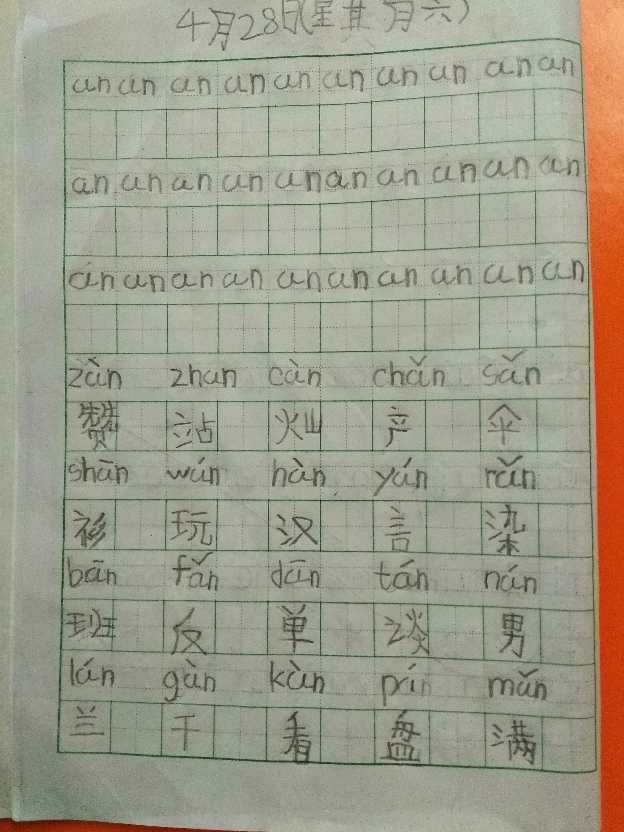 4月28日(星其月六)
an an an an an an an an an an
an an an an an an an an an an
an an an an an an an an an an
zàn zhan càn chǎn sǎn
赞 站 灿 产 伞
shān wán hàn yán rǎn
衫 玩 汉 言 染
bān fǎn dān tán nán
班 反 单 谈 男
lán gàn kàn pán mǎn
兰 干 看 盘 满